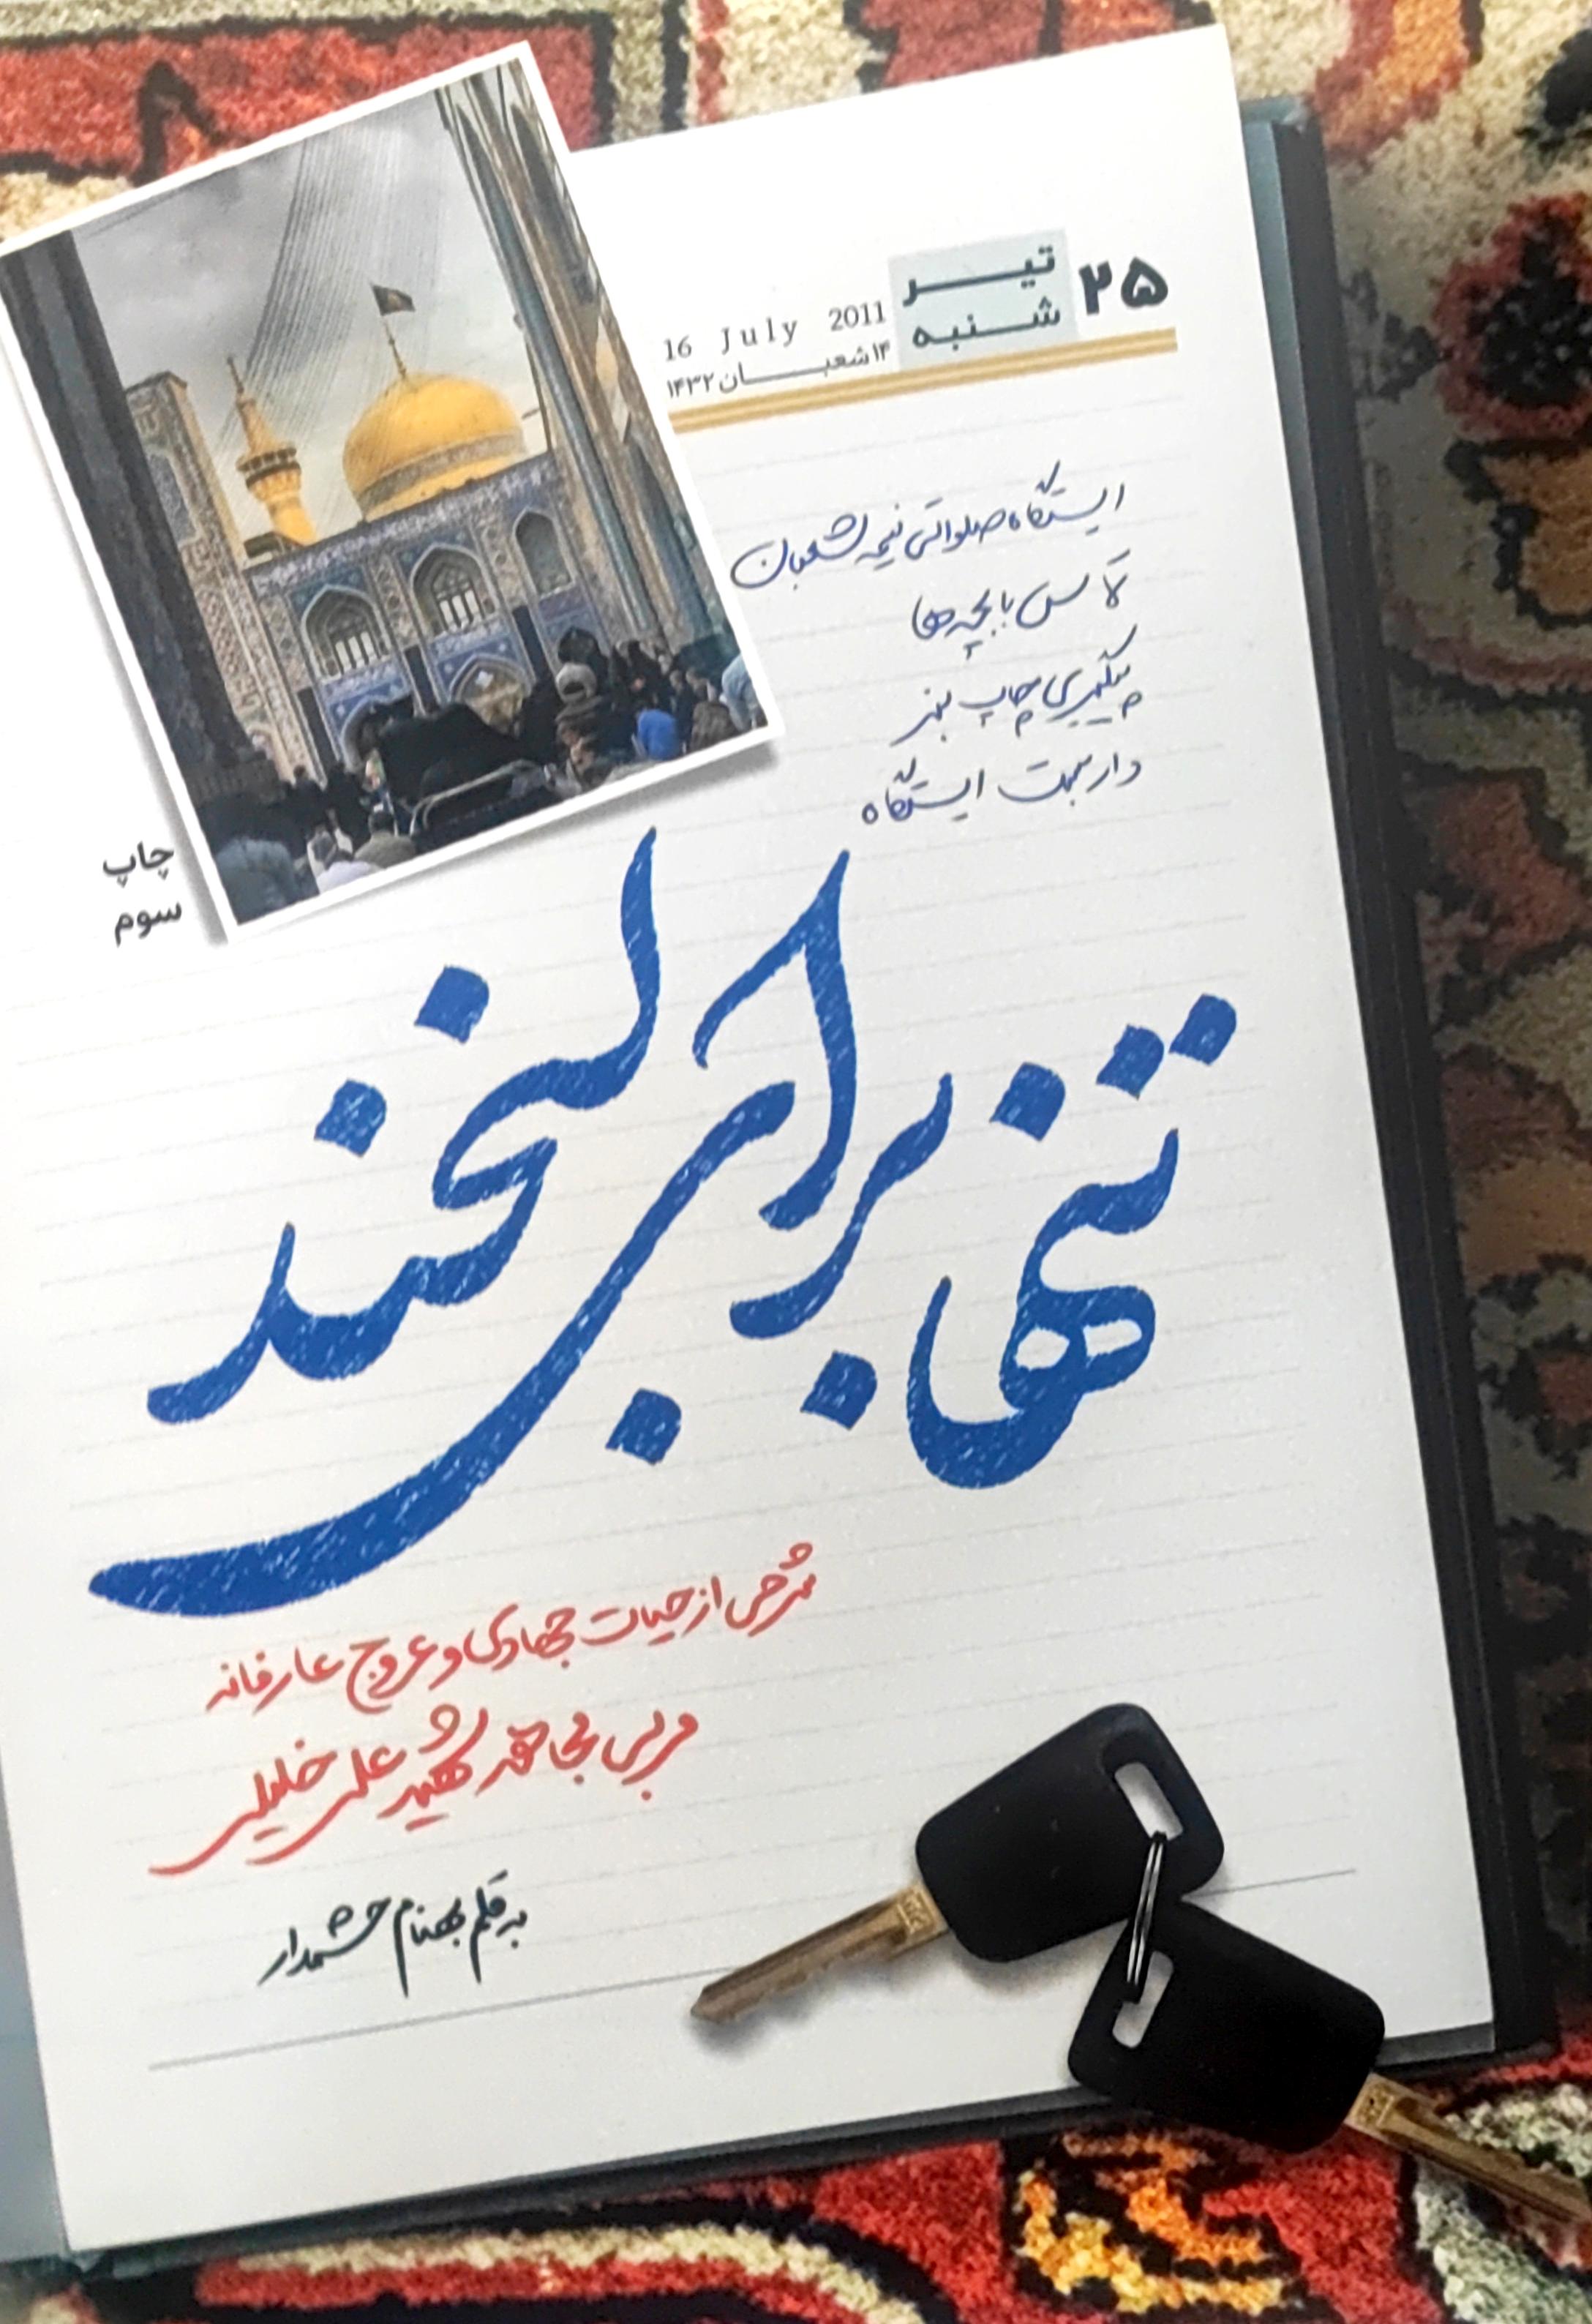 ۲۵
تیر
شنبه
16 July 2011
۱۴ شعبان ۱۴۳۲
ایستگاه صلواتی نیمه شعبان
تماس با بچه ها
پیگیری چاپ بنر
داربست ایستگاه
چاپ
سوم
تنها برای لبخند
شرحی از حیات جهادی و عروج عارفانه
مربی مجاهد شهید علی خلیلی
به قلم بهنام حشمدار